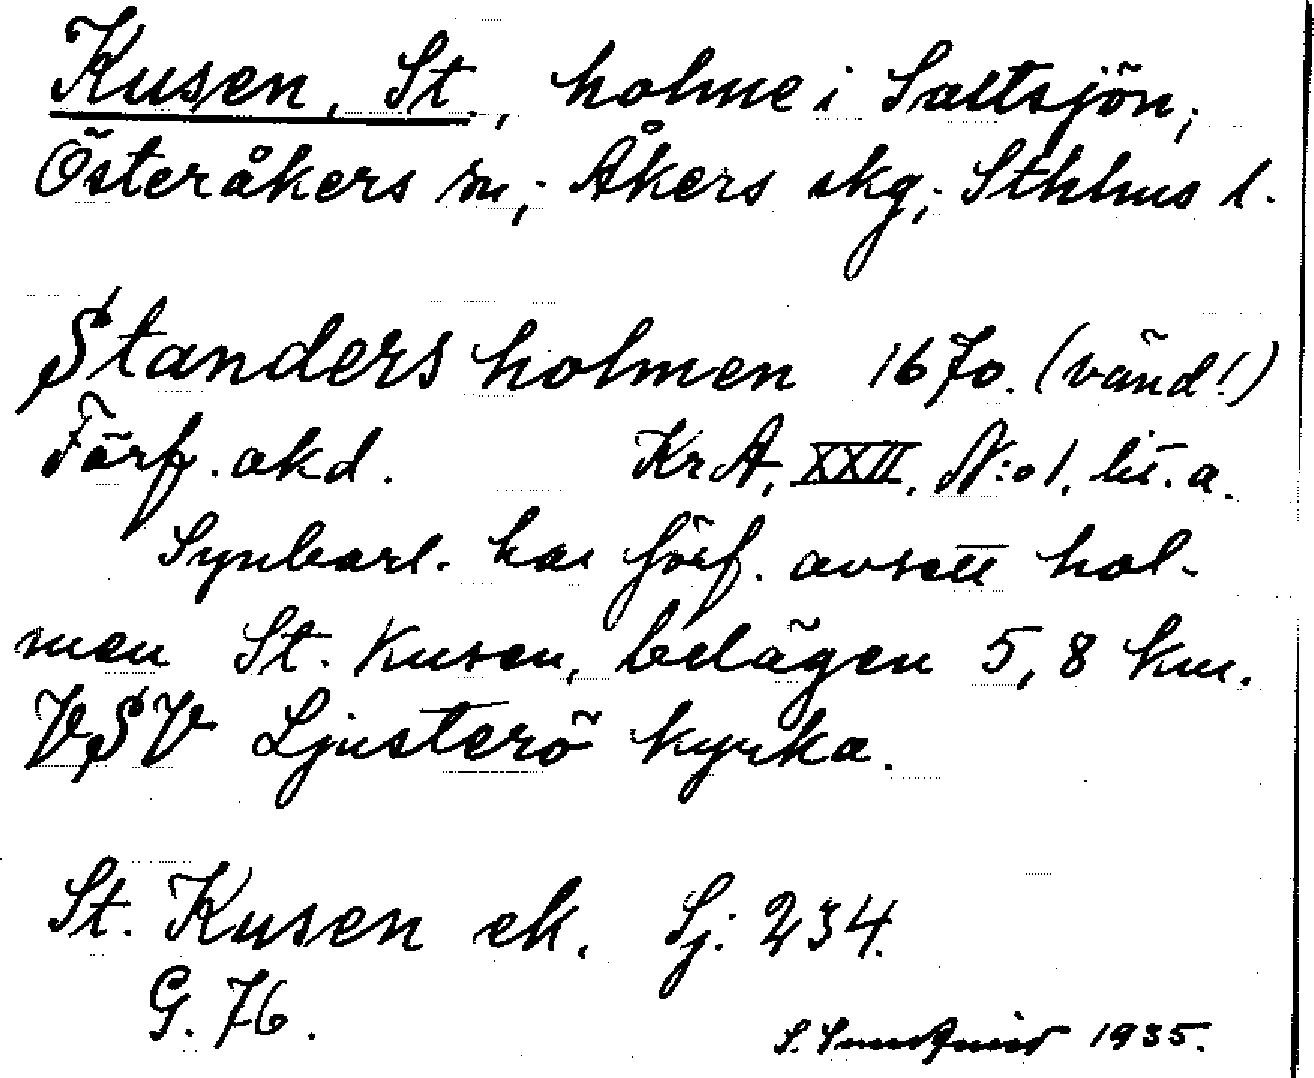 Kusen, St., holme i Saltsjön,
Österåkers sn, Åkers skg, Sthlms l.
Standersholmen 1670. (vänd!)
Förf. okd. KrA, XXII, N:o 1, lit. a.
Synbarl. har förf. avsett hol-
men St. Kusen, belägen 5,8 km.
VSV Ljusterö kyrka.
St. Kusen ek. Sj. 234.
G. 76.
S. 1935.